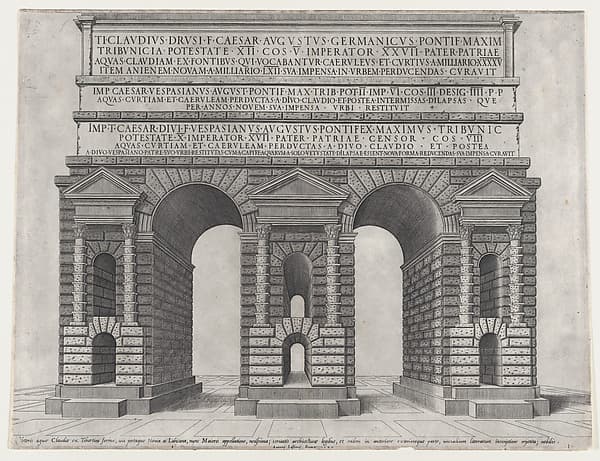 TI·CLAVDIVS·DRVSI·F·CAESAR·AVGVSTVS·GERMANICVS·PONTIF·MAXIM
TRIBVNICIA·POTESTATE·XII·COS·V·IMPERATOR·XXVII·PATER·PATRIAE
AQVAS·CLAVDIAM·EX·FONTIBVS·QVI·VOCABANTVR·CAERVLEVS·ET·CVRTIVS·A·MILLIARIO·XXXXV
ITEM·ANIENEM·NOVAM·A·MILLIARIO·LXII·SVA·IMPENSA·IN·VRBEM·PERDVCENDAS·CVRAVIT
IMP·CAESAR·VESPASIANVS·AVGVST·PONTIF·MAX·TRIB·POT·II·IMP·VI·COS·III·DESIG·IIII·P·P
AQVAS·CVRTIAM·ET·CAERVLEAM·PERDVCTAS·A·DIVO·CLAVDIO·ET·POSTEA·INTERMISSAS·DILAPSAS·QVE
PER·ANNOS·NOVEM·SVA·IMPENSA·VRBI·RESTITVIT
IMP·T·CAESAR·DIVI·F·VESPASIANVS·AVGVSTVS·PONTIFEX·MAXIMVS·TRIBVNIC
POTESTATE·X·IMPERATOR·XVII·PATER·PATRIAE·CENSOR·COS·VIII
AQVAS·CVRTIAM·ET·CAERVLEAM·PERDVCTAS·A·DIVO·CLAVDIO·ET·POSTEA
A·DIVO·VESPASIANO·PATRE·SVO·VRBI·RESTITVTAS·CVM·A·CAPITE·AQVARVM·A·SOLO·VETVSTATE·DILAPSAE·ESSENT·NOVA·FORMA·REDVCENDAS·SVA·IMPENSA·CVRAVIT
aquae Claudiae ex Tiburtino